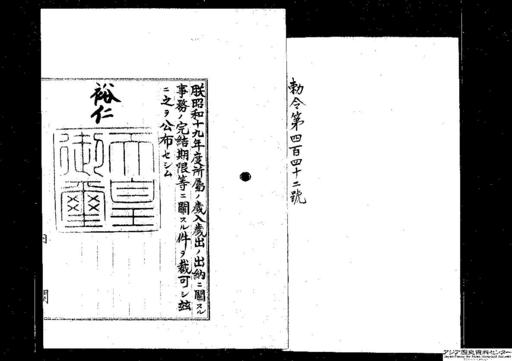 勅令第四百四十二號
朕昭和十九年度所屬ノ歲入歲出ノ出納ニ關スル
事務ノ完結期限等ニ關スル件ヲ裁可シ玆
ニ之ヲ公布セシム
裕仁
天皇
御璽
内閣
アジア歴史資料センター